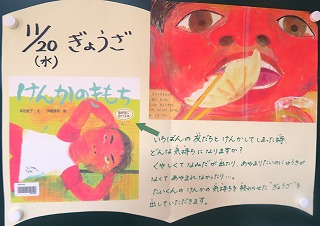 11/20
(水)
ぎょうざ
けんかのきもち
いちばんの友だちとけんかしてしまった時
どんな気持ちになりますか?
くやしくてなみだが出たり、あやまりたいのにゆうきが
なくてあやまれなかったり…。
たいくんの けんかの気持ちを終わらせた"ぎょうざ"を
出していただきます。